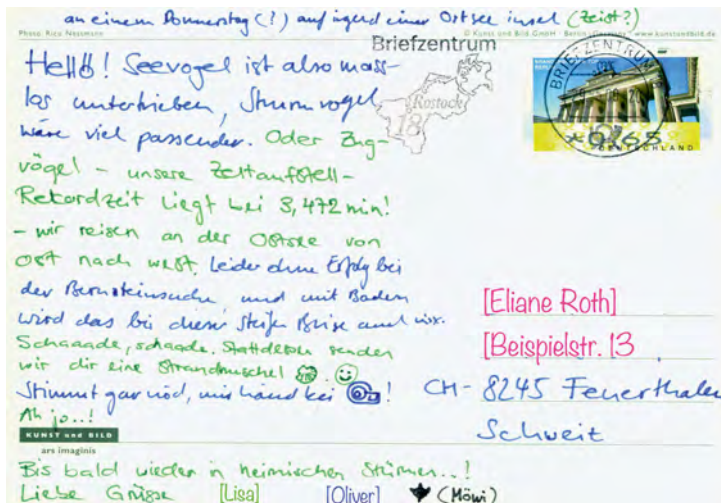 an einem Donnerstag (?) auf irgend einer Ostsee insel (Zeist?)
Photo: Rico Nessmann
© Kunst und Bild GmbH · Berlin · Germany · www.kunstundbild.de
Hello! Seevogel ist also mass-
los untertrieben, Sturmvogel
wäre viel passender. Oder Zug-
vögel - unsere Zeltaufstell-
Rekordzeit liegt bei 3,472 min!
- wir reisen an der Ostsee von
Ost nach West. Leider ohne Erfolg bei
der Bernsteinsuche, und mit Baden
wird das bei dieser steifen Brise auch nix.
Schaaade, schaade. Stattdessen senden
wir dir eine Strandmuschel
Stimmt gar nöd, mir händ kei !
Ah jo..!
KUNST und BILD
ars imaginis
Bis bald wieder in heimischen Stürmen..!
Liebe Grüsse [Lisa] [Oliver] (Möwi)
Briefzentrum
Rostock
18
BRIEFZENTRUM
*0,65
DEUTSCHLAND
[Eliane Roth]
[Beispielstr. 13
CH- 8245 Feuerthalen
Schweit